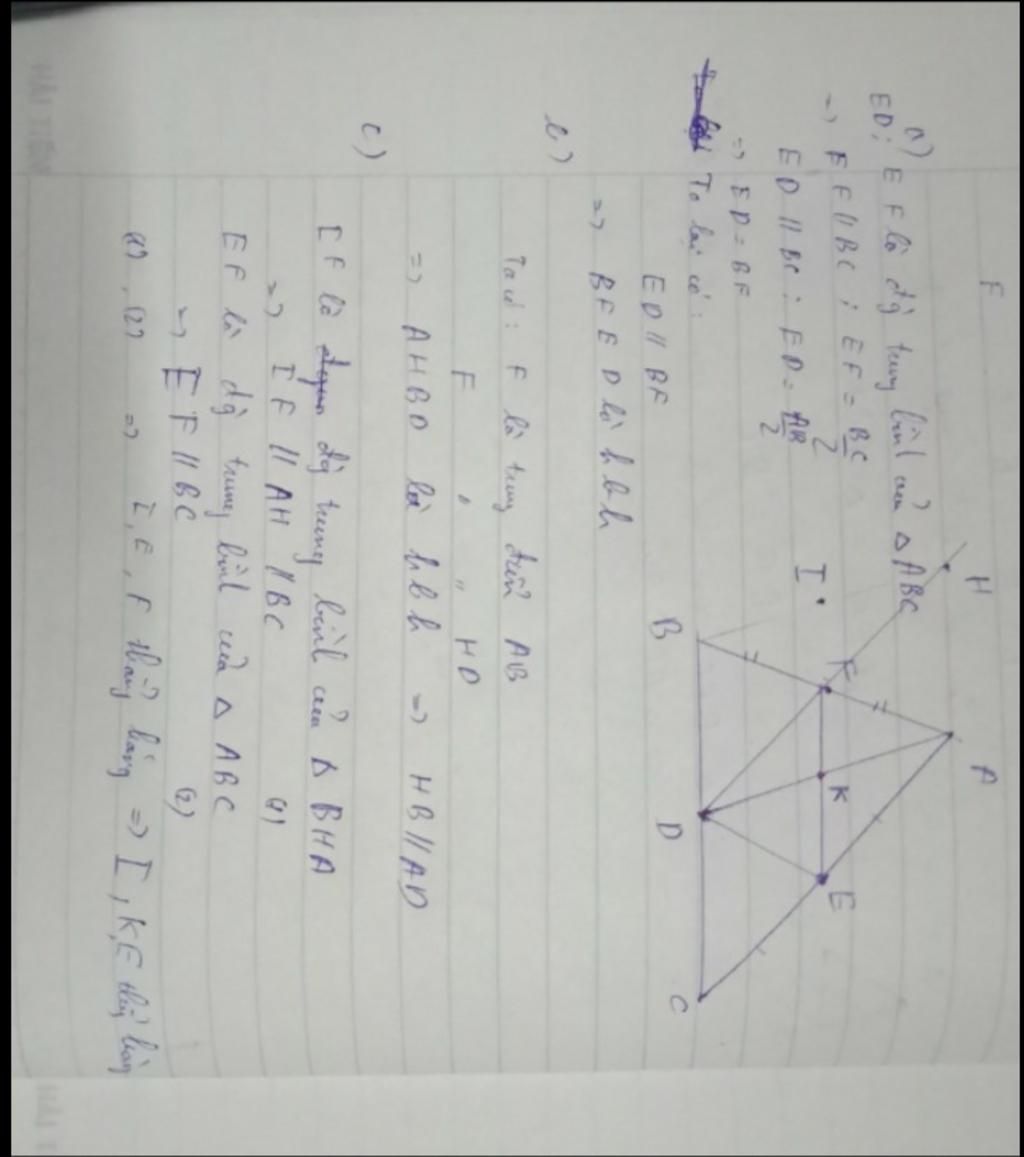 F
H
A
K
E
I
B
D
C
F
a)
EF là đg trung bình của △ ABC
ED:
=> EF // BC ; EF = BC/2
ED // BC ; ED = AB/2
=> ED = BF
Ta lại có :
ED // BF
=> BFED là hbh
b)
Ta có : F là trung điểm AB
F " " HD
=> AHBD là hbh => HB // AD
c)
IF là đg trung bình của △ BHA
=> IF // AH // BC (1)
EF là đg trung bình của △ ABC
=> EF // BC (2)
(1), (2) => I, E, F thẳng hàng => I, K, E thẳng hàng
HẢI TIẾN
HẢI T